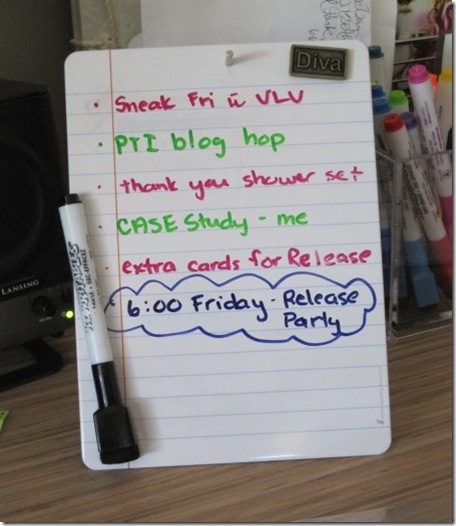 Diva
• Sneak Fri w̄ VLV
• PTI blog hop
• thank you shower set
• CASE Study - me
• extra cards for Release
6:00 Friday - Release
Party
LANSING